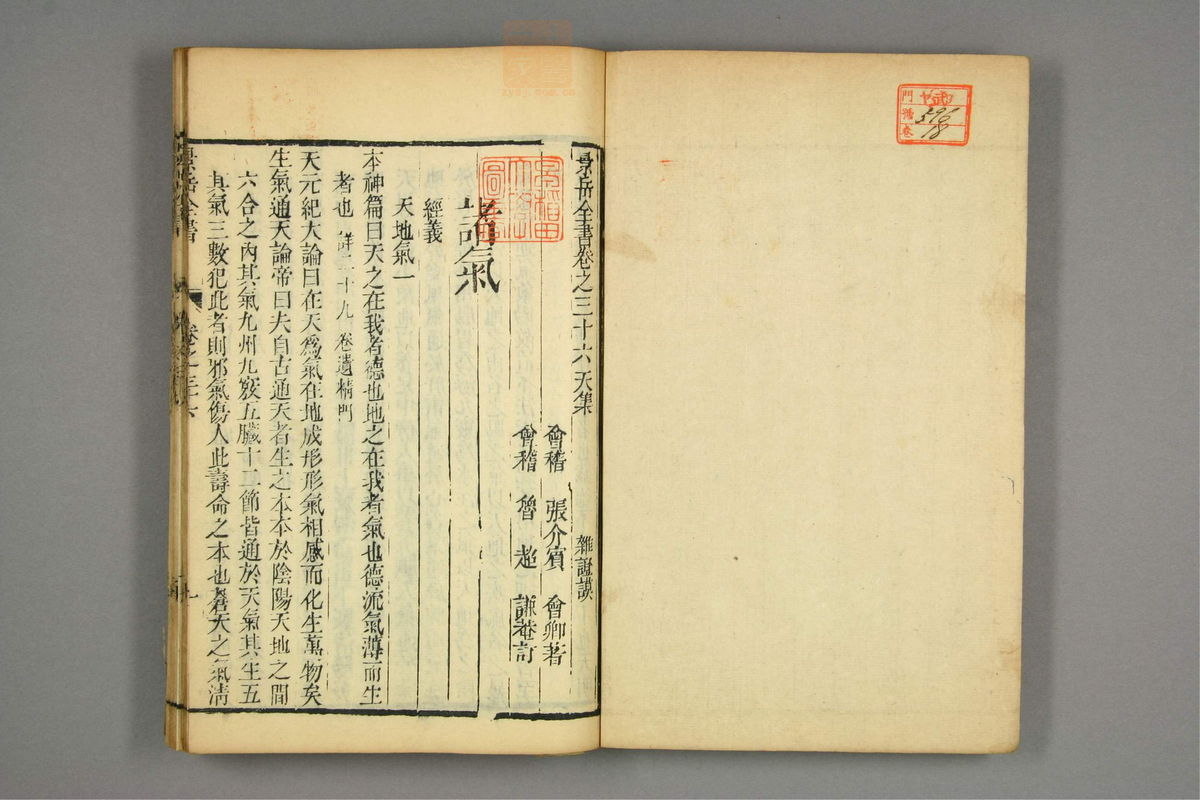 景岳全書卷之三十六天集 雜證謨
會稽 張介賓 會卿著
會稽 魯 超 謙菴訂
諸氣
經義
天地氣一
本神篇曰天之在我者德也地之在我者氣也德流氣薄而生
者也 詳二十九卷遺精門
天元紀大論曰在天爲氣在地成形形氣相感而化生萬物矣
生氣通天論帝曰夫自古通天者生之本本於陰陽天地之間
六合之內其氣九州九竅五臟十二節皆通於天氣其生五
其氣三數犯此者則邪氣傷人此壽命之本也蒼天之氣清
景岳全書
卷之三十六
一
早稻田
大學
圖書
門
號
卷
596
18